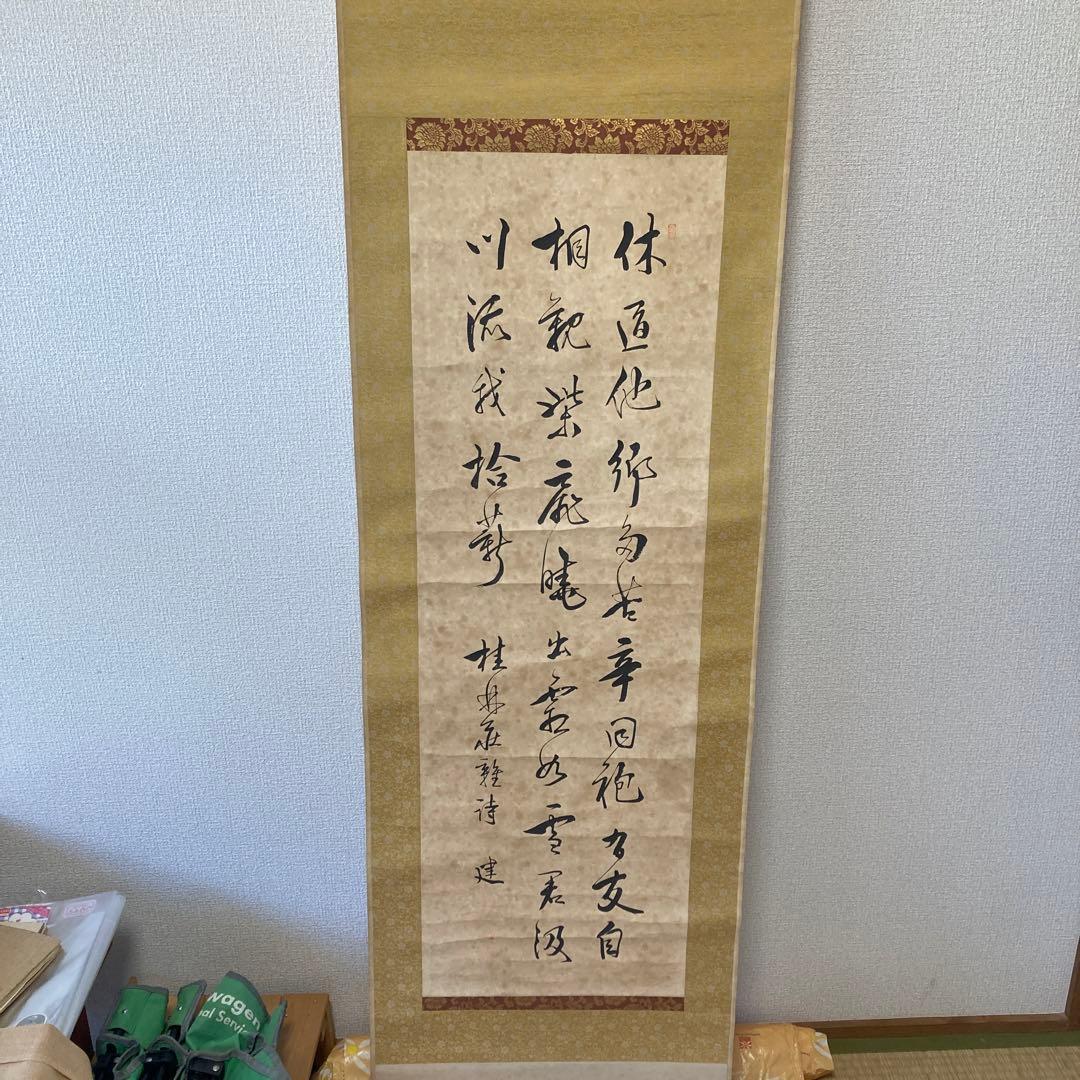 休道他郷多苦辛同袍有友自
相親柴扉暁出霜如雪君汲
川流我拾薪
桂林荘雑詩 建
wagen
nal Servic